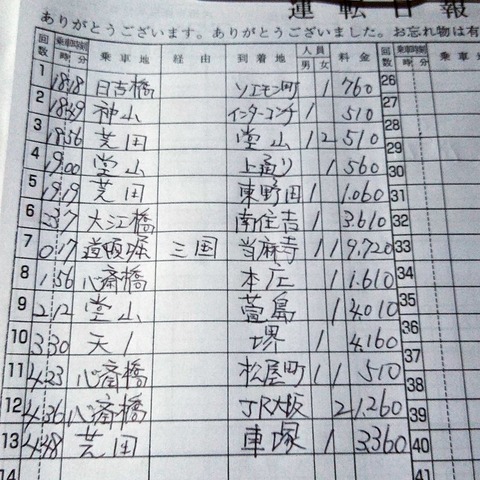 運転日報
ありがとうございます。ありがとうございました。お忘れ物は有
回数 乗車時刻 時 分 乗車地 経由 到着地 人員 男 女 料金 回数 乗車時刻 時 分 乗車地
1 18 18 日吉橋 ソエモン町 1 760 26
2 18 49 神山 インターコンチ 1 510 27
3 18 56 芝田 堂山 1 2 510 28
4 19 00 堂山 上通り 1 560 29
5 19 19 芝田 東野田 1 1.060 30
6 37 大江橋 南住吉 1 3.610 32
7 0 17 道頓堀 三国 当麻寺 1 1 9.720 33
8 1 56 心斎橋 本庄 1 1.610 34
9 2 12 堂山 萱島 1 4.010 35
10 3 30 天1 堺 1 4.160 36
11 4 23 心斎橋 松屋町 1 1 510 37
12 4 36 心斎橋 JR大阪 2 1.260 39
13 4 48 芝田 車塚 1 3360 40
14 41
31
38